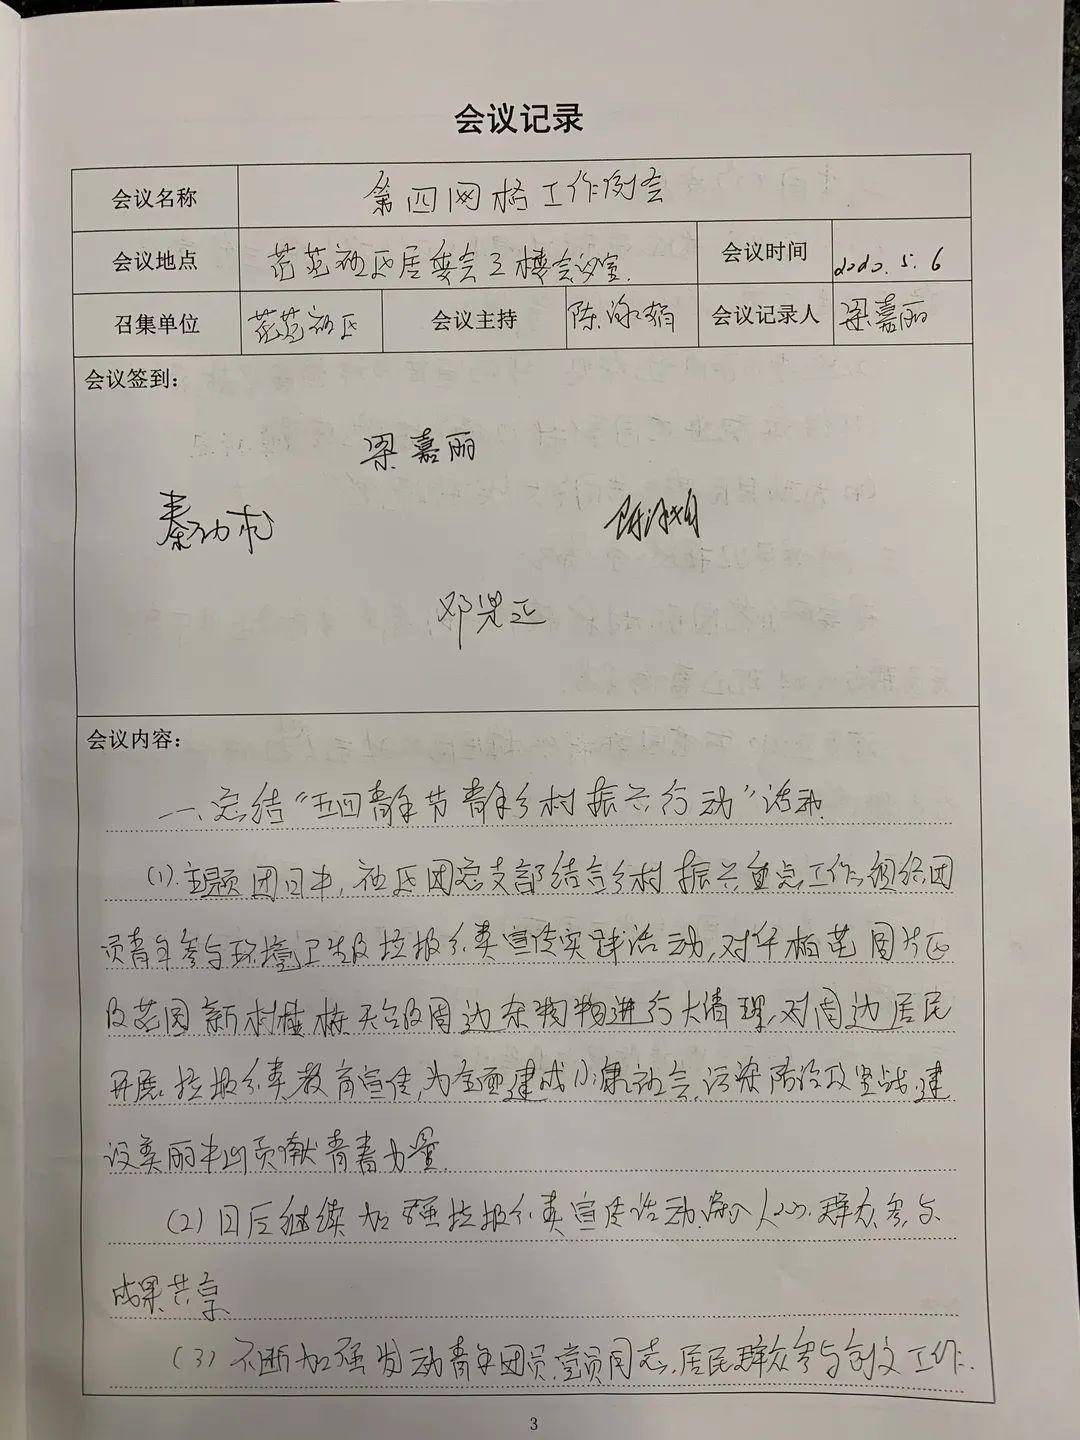 会议记录
会议名称 第四网格工作例会
会议地点 范范社区居委会三楼会议室. 会议时间 2020.5.6
召集单位 社区 会议主持 陈泳娟 会议记录人 梁嘉丽
会议签到:
梁嘉丽
秦
陈泳娟
邓
会议内容:
一、总结“五四青年节青年乡村振兴行动”活动
(1).主题团日中,社区团总支部结合乡村振兴重点工作,组织团
员青年参与环境卫生及垃圾分类宣传实践活动,对华柏花园片区
及花园新村楼栋天台及周边杂物进行大清理,对周边居民
开展垃圾分类教育宣传,为全面建成小康社会,污染防治攻坚战,建
设美丽中山贡献青春力量.
(2)日后继续加强垃圾分类宣传活动,深入人心.群众参与
成果共享
(3)不断加强发动青年团员,党员同志,居民群众参与创文工作.
3